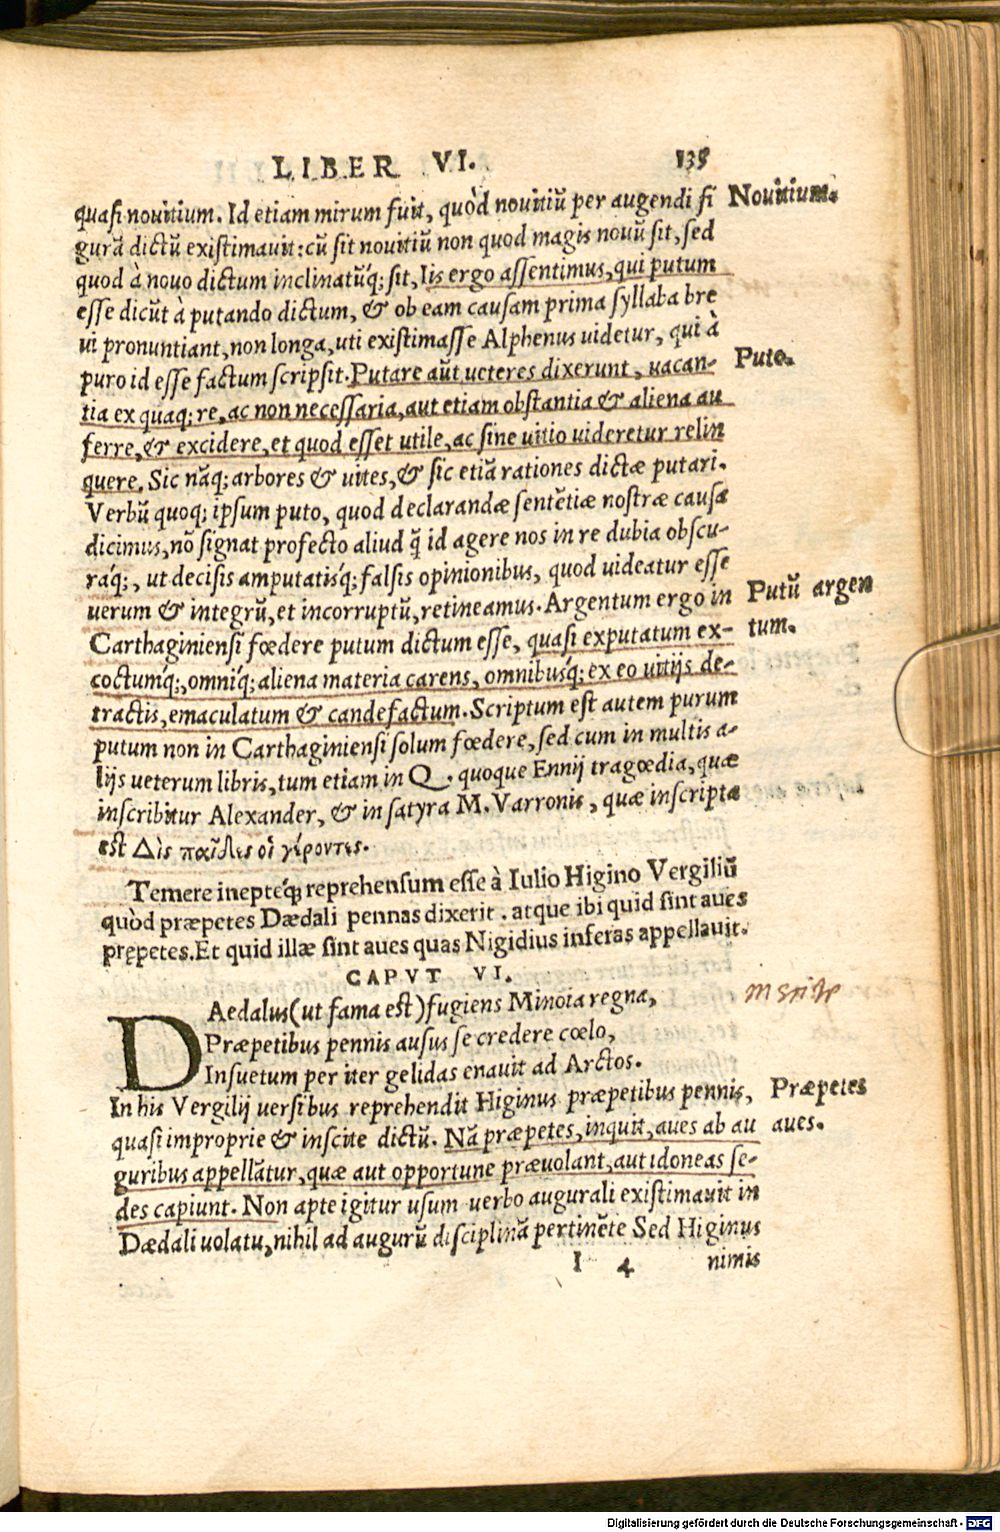 LIBER VI. 135
quasi novitium. Id etiam mirum fuit, quòd novitiũ per augendi fi
gurã dictũ existimavit: cũ sit novitiũ non quod magis novũ sit, sed
quod à novo dictum inclinatũq́; sit, Iis ergo assentimus, qui putum
esse dicũt à putando dictum, & ob eam causam prima syllaba bre
vi pronuntiant, non longa, uti existimasse Alphenus videtur, qui à
puro id esse factum scripsit. Putare aũt veteres dixerunt, vacan-
tia ex quaq; re, ac non necessaria, aut etiam obstantia & aliena au
ferre, & excidere, et quod esset utile, ac sine vitio videretur relin
quere. Sic nãq; arbores & vites, & sic etiã rationes dictæ putari.
Verbũ quoq; ipsum puto, quod declarandæ sentẽtiæ nostræ causa
dicimus, nõ signat profecto aliud q̃ id agere nos in re dubia obscu-
raq́;, ut decisis amputatisq́; falsis opinionibus, quod videatur esse
verum & integrũ, et incorruptũ, retineamus. Argentum ergo in
Carthaginiensi fœdere putum dictum esse, quasi exputatum ex-
coctumq́;, omniq́; aliena materia carens, omnibusq́; ex eo vitijs de-
tractis, emaculatum & candefactum. Scriptum est autem purum
putum non in Carthaginiensi solum fœdere, sed cum in multis a-
lijs veterum libris, tum etiam in Q. quoque Ennij tragœdia, quæ
inscribitur Alexander, & in satyra M. Varronis, quæ inscripta
est Δὶς παῖδες οἱ γέροντες.
Temere inepteq́; reprehensum esse à Iulio Higino Vergiliũ
quòd præpetes Dædali pennas dixerit. atque ibi quid sint aves
prępetes. Et quid illæ sint aves quas Nigidius inferas appellavit.
CAPVT VI.
Daedalus (ut fama est) fugiens Minoia regna,
Præpetibus pennis ausus se credere cœlo,
Insuetum per iter gelidas enavit ad Arctos.
In his Vergilij versibus reprehendit Higinus præpetibus pennis,
quasi improprie & inscite dictũ. Nã præpetes, inquit, aves ab au
guribus appellãtur, quæ aut opportune prævolant, aut idoneas se-
des capiunt. Non apte igitur usum verbo augurali existimavit in
Dædali volatu, nihil ad augurũ disciplinã pertinẽte Sed Higinus
I 4 nimis
Novitium.
Puto.
Putũ argen
tum.
Præpetes
aves.
Digitalisierung gefördert durch die Deutsche Forschungsgemeinschaft - DFG